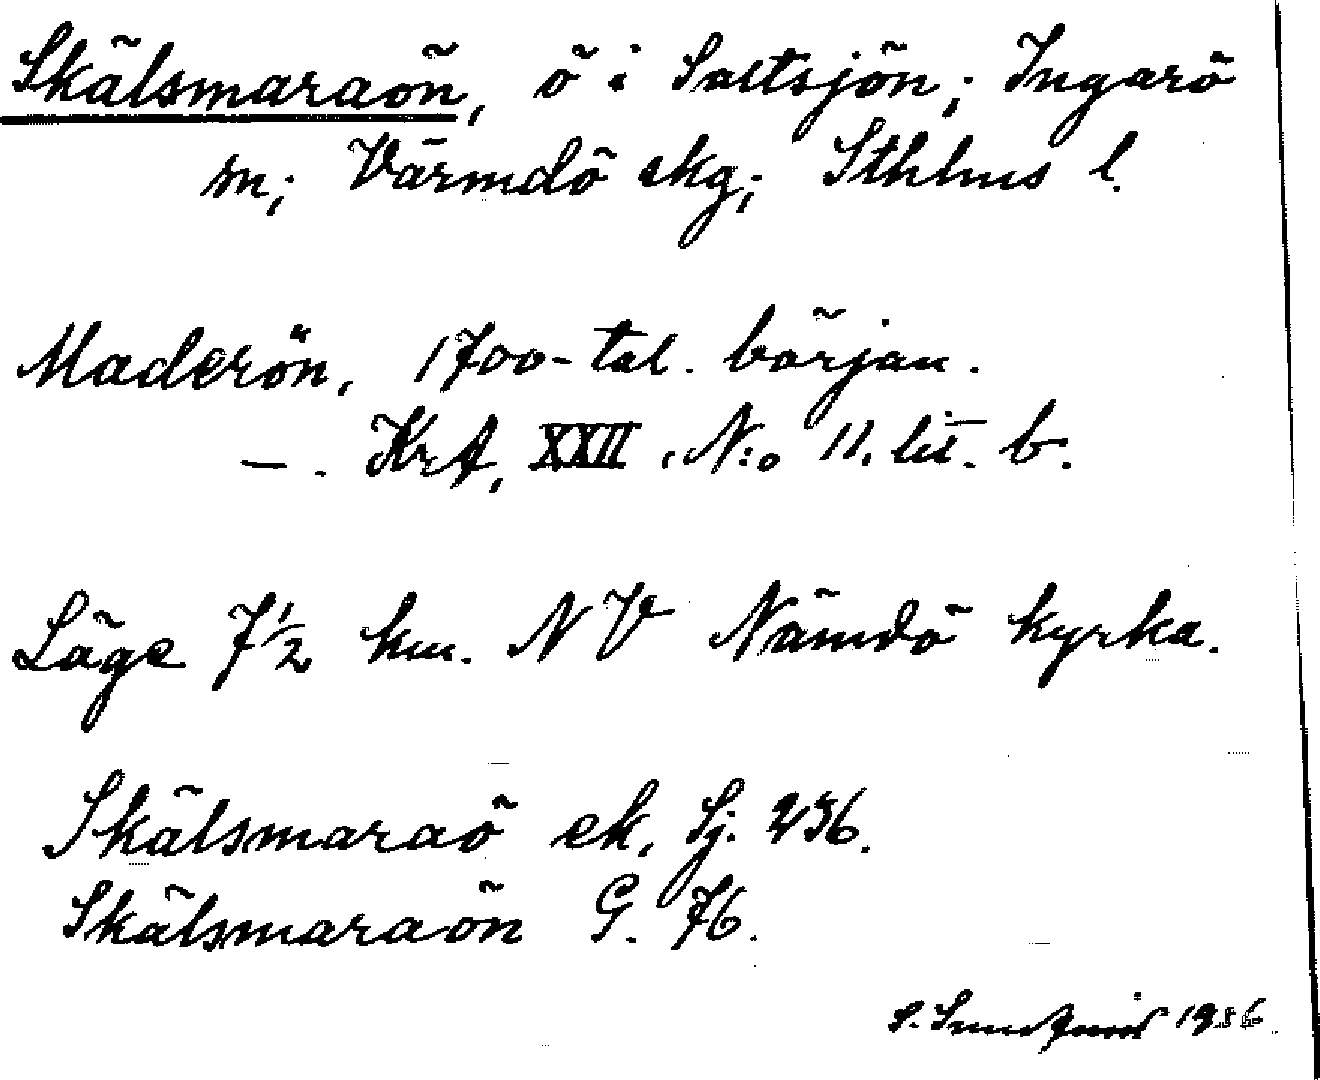 Skälsmaraön, ö i Saltsjön; Ingarö
sn; Värmdö skg; Sthlms l.
Maderön, 1700-tal. början.
—. KrA, XXII, N:o 11. lit. b.
Läge 7 1/2 km. NV Nämdö kyrka.
Skälsmaraö ek. Sj. 236.
Skälsmaraön G. 76.
S. 1936